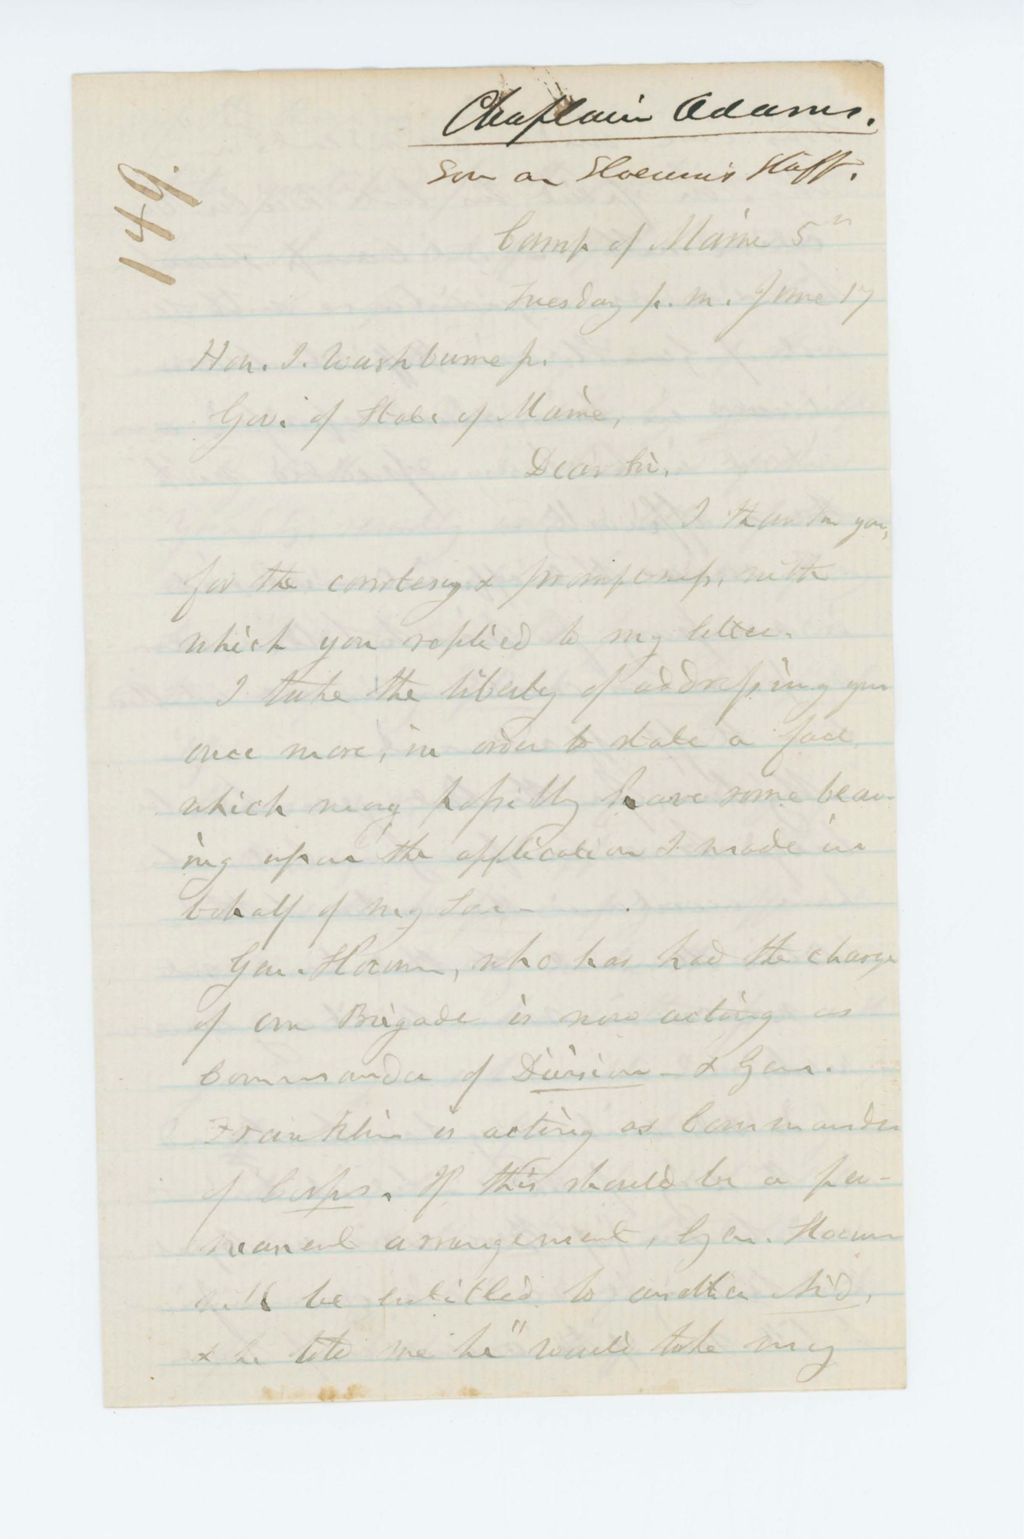 Chaplain Adams.
Son on Slocum's Staff.
149.
Camp of Maine 5th
Tuesday p. m. June 17
Hon. I. Washburne jr.
Gov. of State of Maine,
Dear Sir,
I thank you,
for the courtesy & promptness, with
which you replied to my letter.
I take the liberty of addressing you
once more, in order to state a fact
which may possibly have some bear-
ing upon the application I made in
behalf of my son -
Gen. Slocum, who has had the charge
of our Brigade is now acting as
Commander of Division - & Gen.
Franklin is acting as Commander
of Corps. If this should be a per-
manent arrangement, Gen. Slocum
will be entitled to another Aid,
& he told me he "would take my